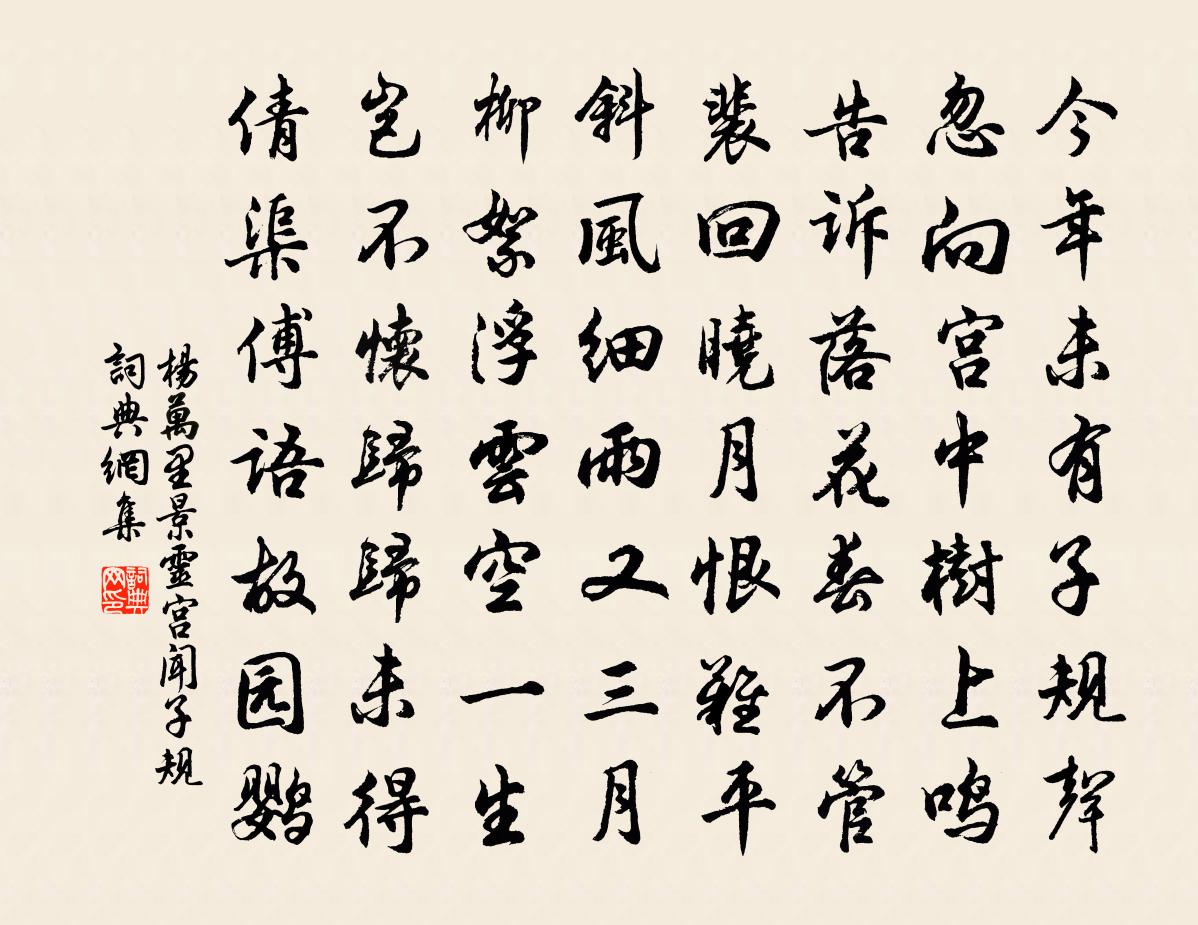 今年未有子規聲
忽向宫中樹上鳴
告诉落花春不管
裴回曉月恨難平
斜風細雨又三月
柳絮浮雲空一生
岂不懷歸歸未得
倩渠傅語故园鹦
楊萬里景靈宫闻子規
詞典網集
詞典网印